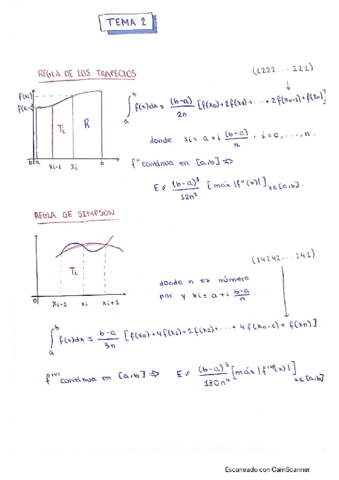 TEMA 2
REGLA DE LOS TRAPECIOS
(1222...221)
f(xi)
f(xi-1)
Ti
R
0 a xi-1 xi b
∫_a^b f(x)dx ≈ (b-a)/2n [f(x0)+2f(x1)+...+2f(xn-1)+f(xn)]
donde xi = a + i (b-a)/n , i=0,...,n.
f'' continua en [a,b] ⇒
E ≤ (b-a)³/12n² [máx |f''(x)|] x∈[a,b].
REGLA DE SIMPSON
(14242...241)
Ti
0 xi-1 xi xi+1
donde n es número
par y xi = a + i (b-a)/n.
∫_a^b f(x)dx ≈ (b-a)/3n [f(x0)+4f(x1)+2f(x2)+...+4f(xn-1)+f(xn)]
f^(IV) continua en [a,b] ⇒ E ≤ (b-a)⁵/180n⁴ [máx |f^(IV)(x)|] x∈[a,b]
Escaneado con CamScanner